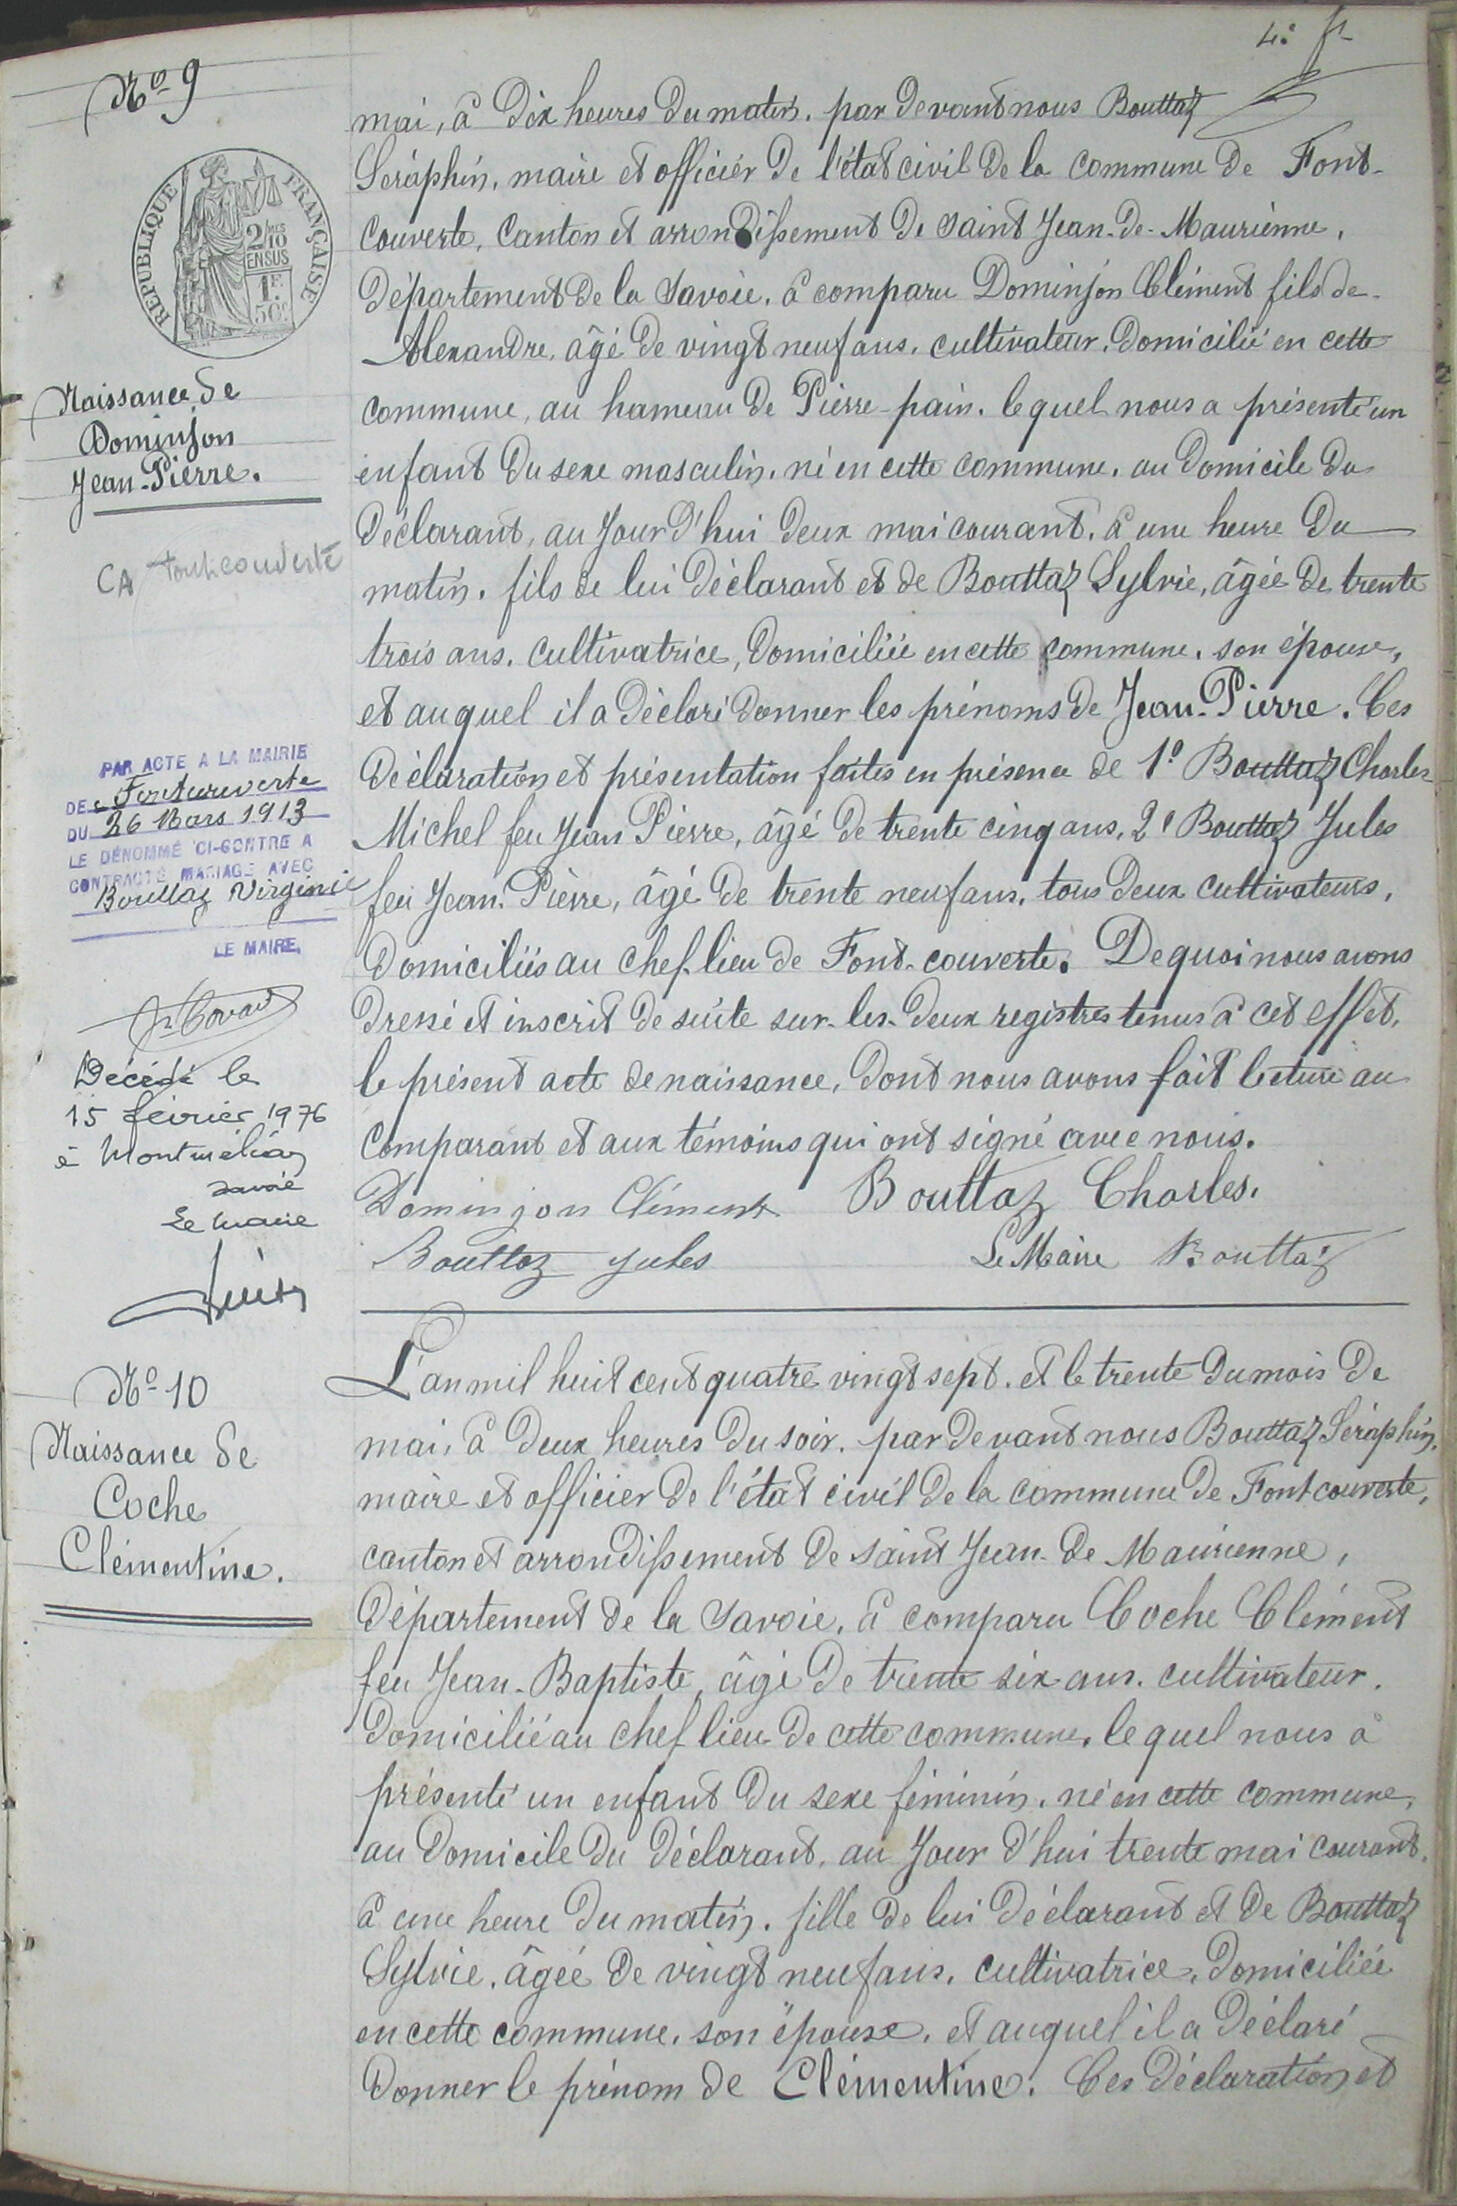 4e
No 9
mai, à dix heures du matin. par devant nous Bouttaz
Séraphin, maire et officier de l'état civil de la commune de Font-
couverte, Canton et arrondissement de Saint Jean-de-Maurienne,
département de la Savoie, à comparu Dominjon Clément fils de
Alexandre, âgé de vingt neuf ans, cultivateur, domicilié en cette
commune, au hameau de Pierre-pain. lequel nous a présenté un
enfant du sexe masculin, né en cette commune, au domicile du
déclarant, au jour d'hui deux mai courant, à une heure du
matin. fils de lui déclarant et de Bouttaz Sylvie, âgée de trente
trois ans, cultivatrice, domiciliée en cette commune, son épouse,
et auquel il a déclaré donner les prénoms de Jean-Pierre. Ces
déclaration et présentation faites en présence de 1o Bouttaz Charles
Michel feu Jean Pierre, âgé de trente cinq ans, 2e Bouttaz Jules
feu Jean-Pierre, âgé de trente neuf ans, tous deux cultivateurs,
domiciliés au chef-lieu de Font-couverte. De quoi nous avons
dressé et inscrit de suite sur-les-deux registres tenus à cet effet,
le présent acte de naissance, dont nous avons fait lecture au
comparant et aux témoins qui ont signé avec nous.
Dominjon Clément Bouttaz Charles.
Bouttaz Jules Le Maire Bouttaz
REPUBLIQUE FRANÇAISE
2/10
EN SUS
1F.
50c.
Naissance de
Dominjon
Jean-Pierre.
CA Fontcouverte
PAR ACTE A LA MAIRIE
DE Fontcouverte
DU 26 Mars 1913
LE DÉNOMMÉ CI-CONTRE A
CONTRACTÉ MARIAGE AVEC
Bouttaz Virginie
LE MAIRE,
Décédé le
15 février 1976
à Montmélian
Savoie
Le Maire
No 10
Naissance de
Coche
Clémentine.
L'an mil huit cent quatre vingt sept. et le trente du mois de
mai, à deux heures du soir. par devant nous Bouttaz Séraphin,
maire et officier de l'état civil de la commune de Fontcouverte,
canton et arrondissement de Saint Jean-de Maurienne,
département de la Savoie, à comparu Coche Clément
feu Jean-Baptiste, âgé de trente six ans. cultivateur,
domicilié au chef lieu de cette commune, lequel nous à
présenté un enfant du sexe féminin, né en cette commune,
au domicile du déclarant, au jour d'hui trente mai courant,
à une heure du matin. fille de lui déclarant et de Bouttaz
Sylvie, âgée de vingt neuf ans, cultivatrice, domiciliée
en cette commune, son épouse, et auquel il a déclaré
donner le prénom de Clémentine. Ces déclaration et